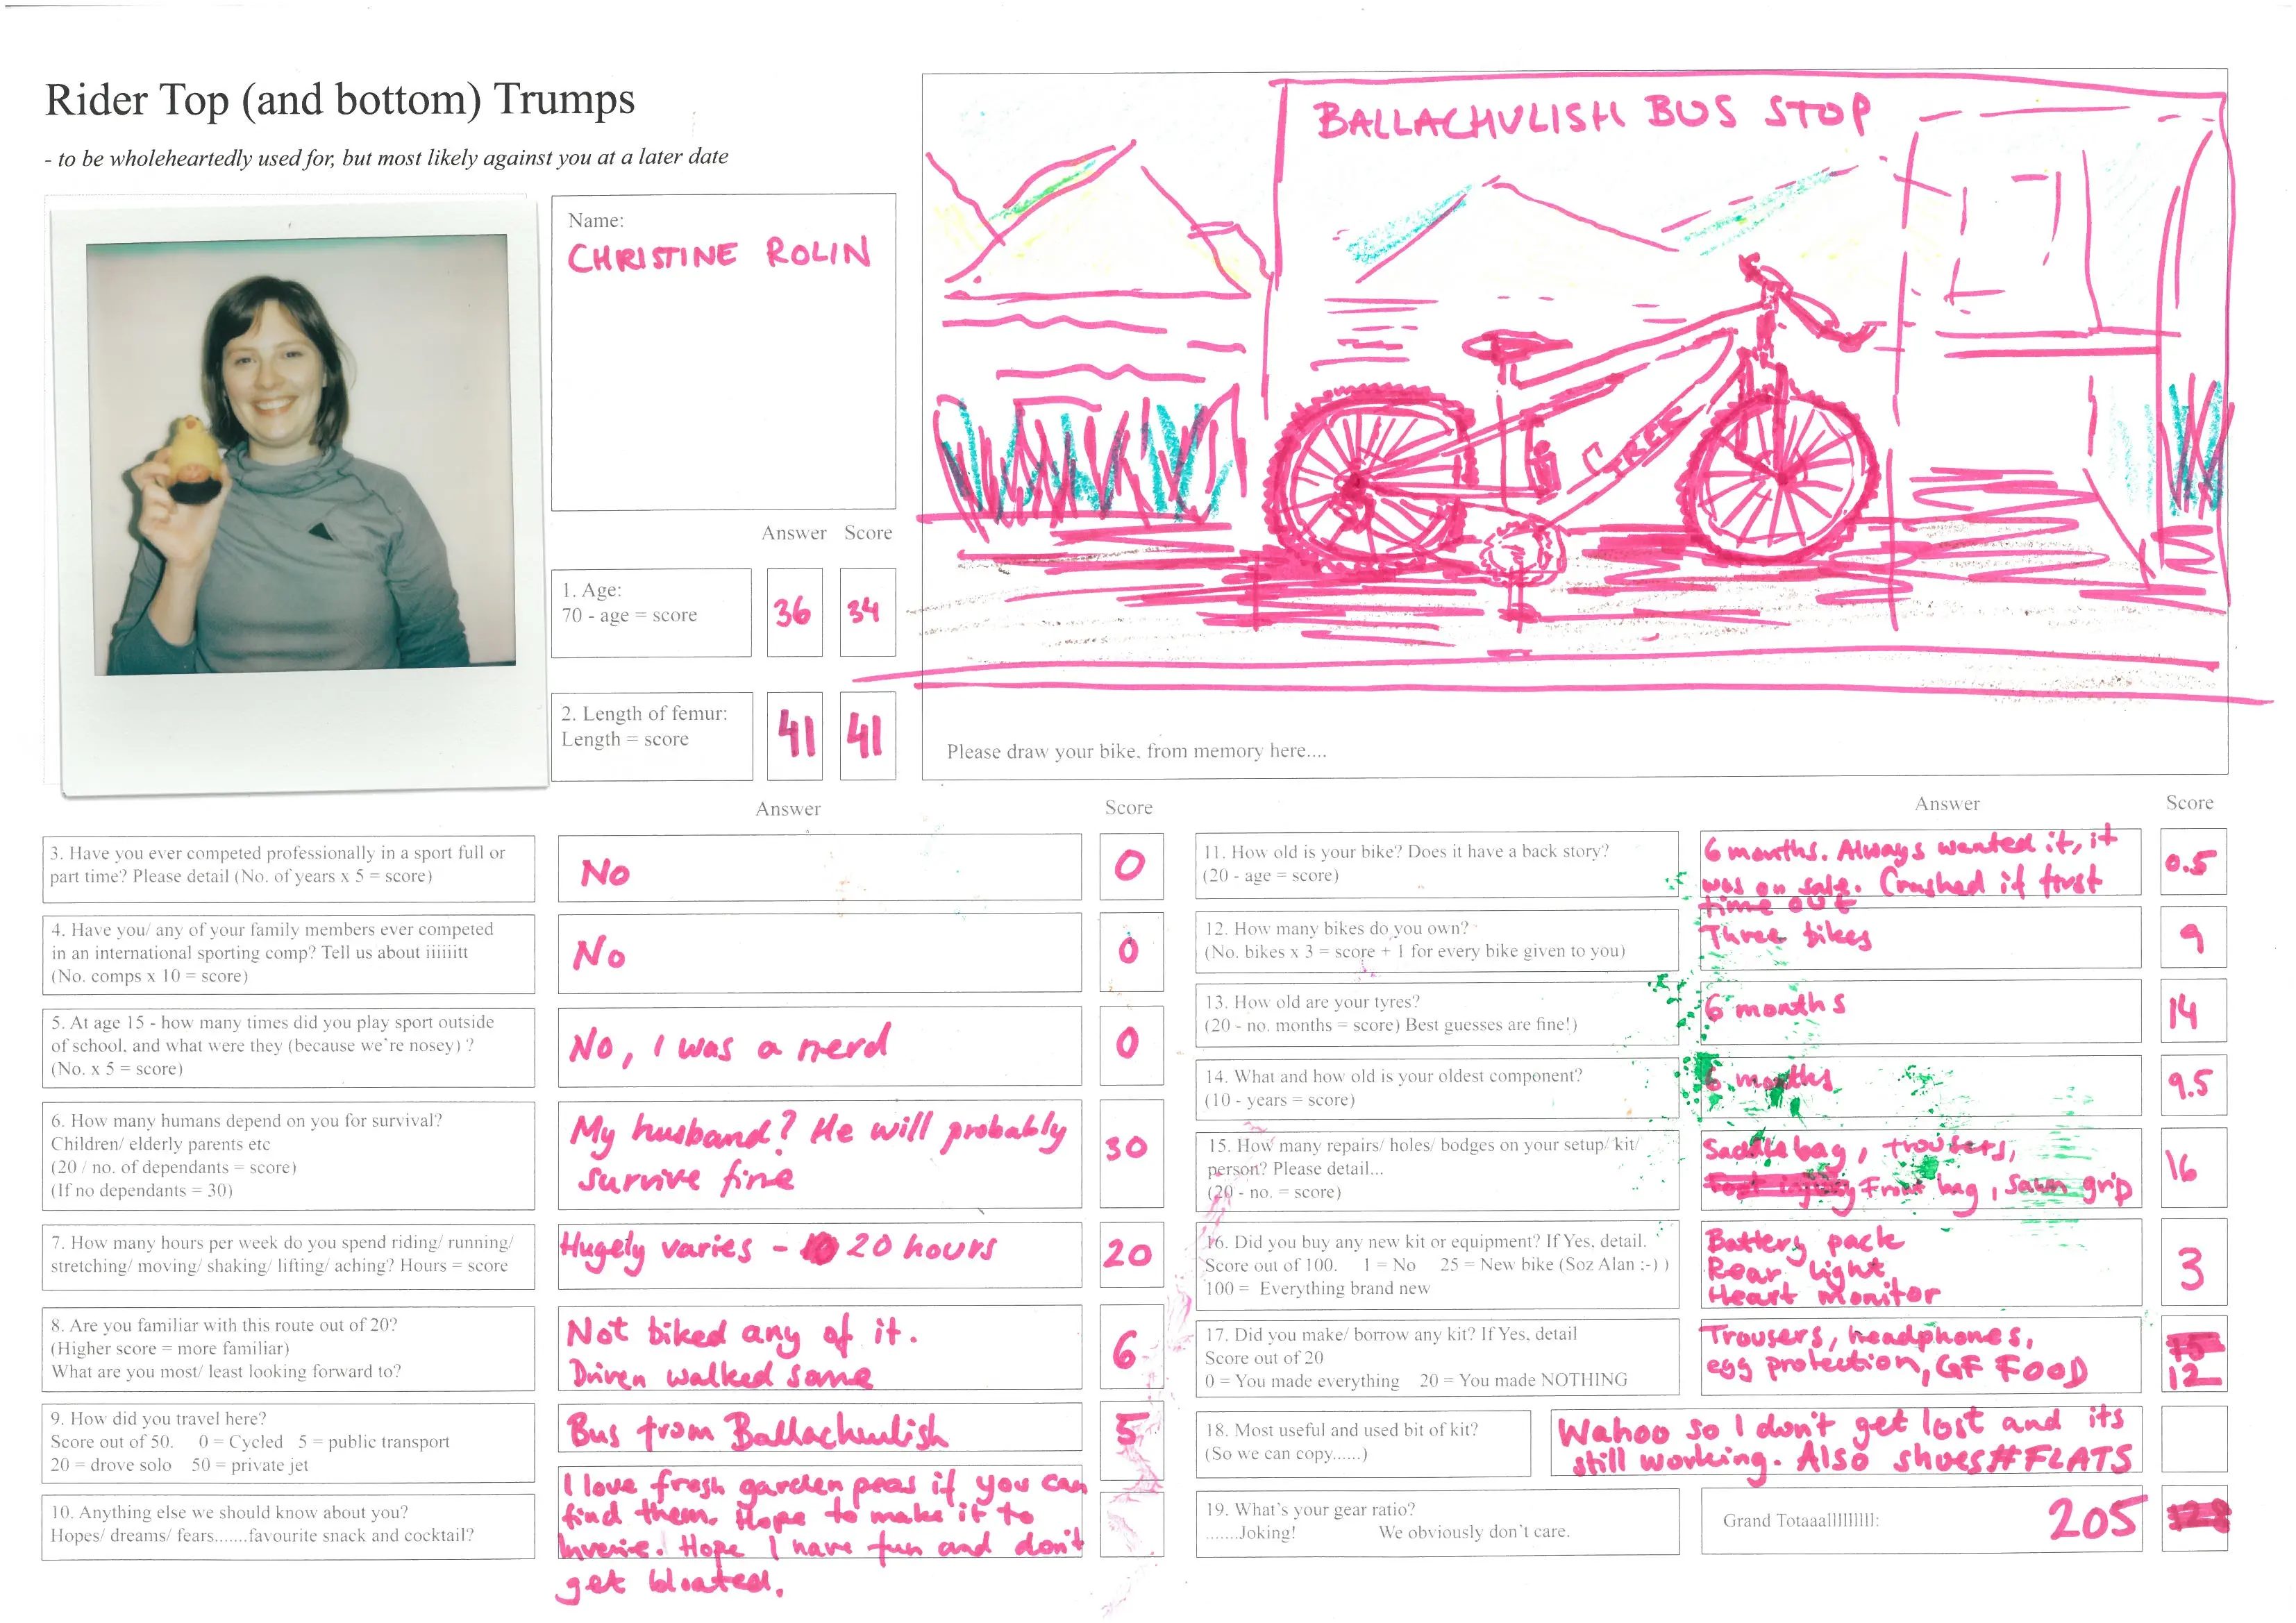 Rider Top (and bottom) Trumps
- to be wholeheartedly used for, but most likely against you at a later date
Name:
CHRISTINE ROLIN
Answer Score
1. Age:
70 - age = score
36 34
2. Length of femur:
Length = score
41 41
BALLACHULISH BUS STOP
TREK
Please draw your bike, from memory here....
Answer Score
3. Have you ever competed professionally in a sport full or
part time? Please detail (No. of years x 5 = score)
No
0
4. Have you/ any of your family members ever competed
in an international sporting comp? Tell us about iiiiiitt
(No. comps x 10 = score)
No
0
5. At age 15 - how many times did you play sport outside
of school, and what were they (because we're nosey) ?
(No. x 5 = score)
No, I was a nerd
0
6. How many humans depend on you for survival?
Children/ elderly parents etc
(20 / no. of dependants = score)
(If no dependants = 30)
My husband? He will probably
survive fine
30
7. How many hours per week do you spend riding/ running/
stretching/ moving/ shaking/ lifting/ aching? Hours = score
Hugely varies - 20 hours
20
8. Are you familiar with this route out of 20?
(Higher score = more familiar)
What are you most/ least looking forward to?
Not biked any of it.
Driven walked some
6
9. How did you travel here?
Score out of 50. 0 = Cycled 5 = public transport
20 = drove solo 50 = private jet
Bus from Ballachulish
5
10. Anything else we should know about you?
Hopes/ dreams/ fears.......favourite snack and cocktail?
I love fresh garden peas if you can
find them. Hope to make it to
Inverie. Hope I have fun and don't
get bloated.
Answer Score
11. How old is your bike? Does it have a back story?
(20 - age = score)
6 months. Always wanted it, it
was on sale. Crashed it first
time out
0.5
12. How many bikes do you own?
(No. bikes x 3 = score + 1 for every bike given to you)
Three bikes
9
13. How old are your tyres?
(20 - no. months = score) Best guesses are fine!)
6 months
14
14. What and how old is your oldest component?
(10 - years = score)
6 months
9.5
15. How many repairs/ holes/ bodges on your setup/ kit/
person? Please detail...
(20 - no. = score)
Saddle bag, trousers,
Front bag, grip
16
16. Did you buy any new kit or equipment? If Yes, detail.
Score out of 100. 1 = No 25 = New bike (Soz Alan :-) )
100 = Everything brand new
Battery pack
Rear light
Heart monitor
3
17. Did you make/ borrow any kit? If Yes, detail
Score out of 20
0 = You made everything 20 = You made NOTHING
Trousers, headphones,
egg protection, GF FOOD
12
18. Most useful and used bit of kit?
(So we can copy......)
Wahoo so I don't get lost and its
still working. Also shoes #FLATS
19. What's your gear ratio?
.......Joking! We obviously don't care.
Grand Totaaallllllllll: 205